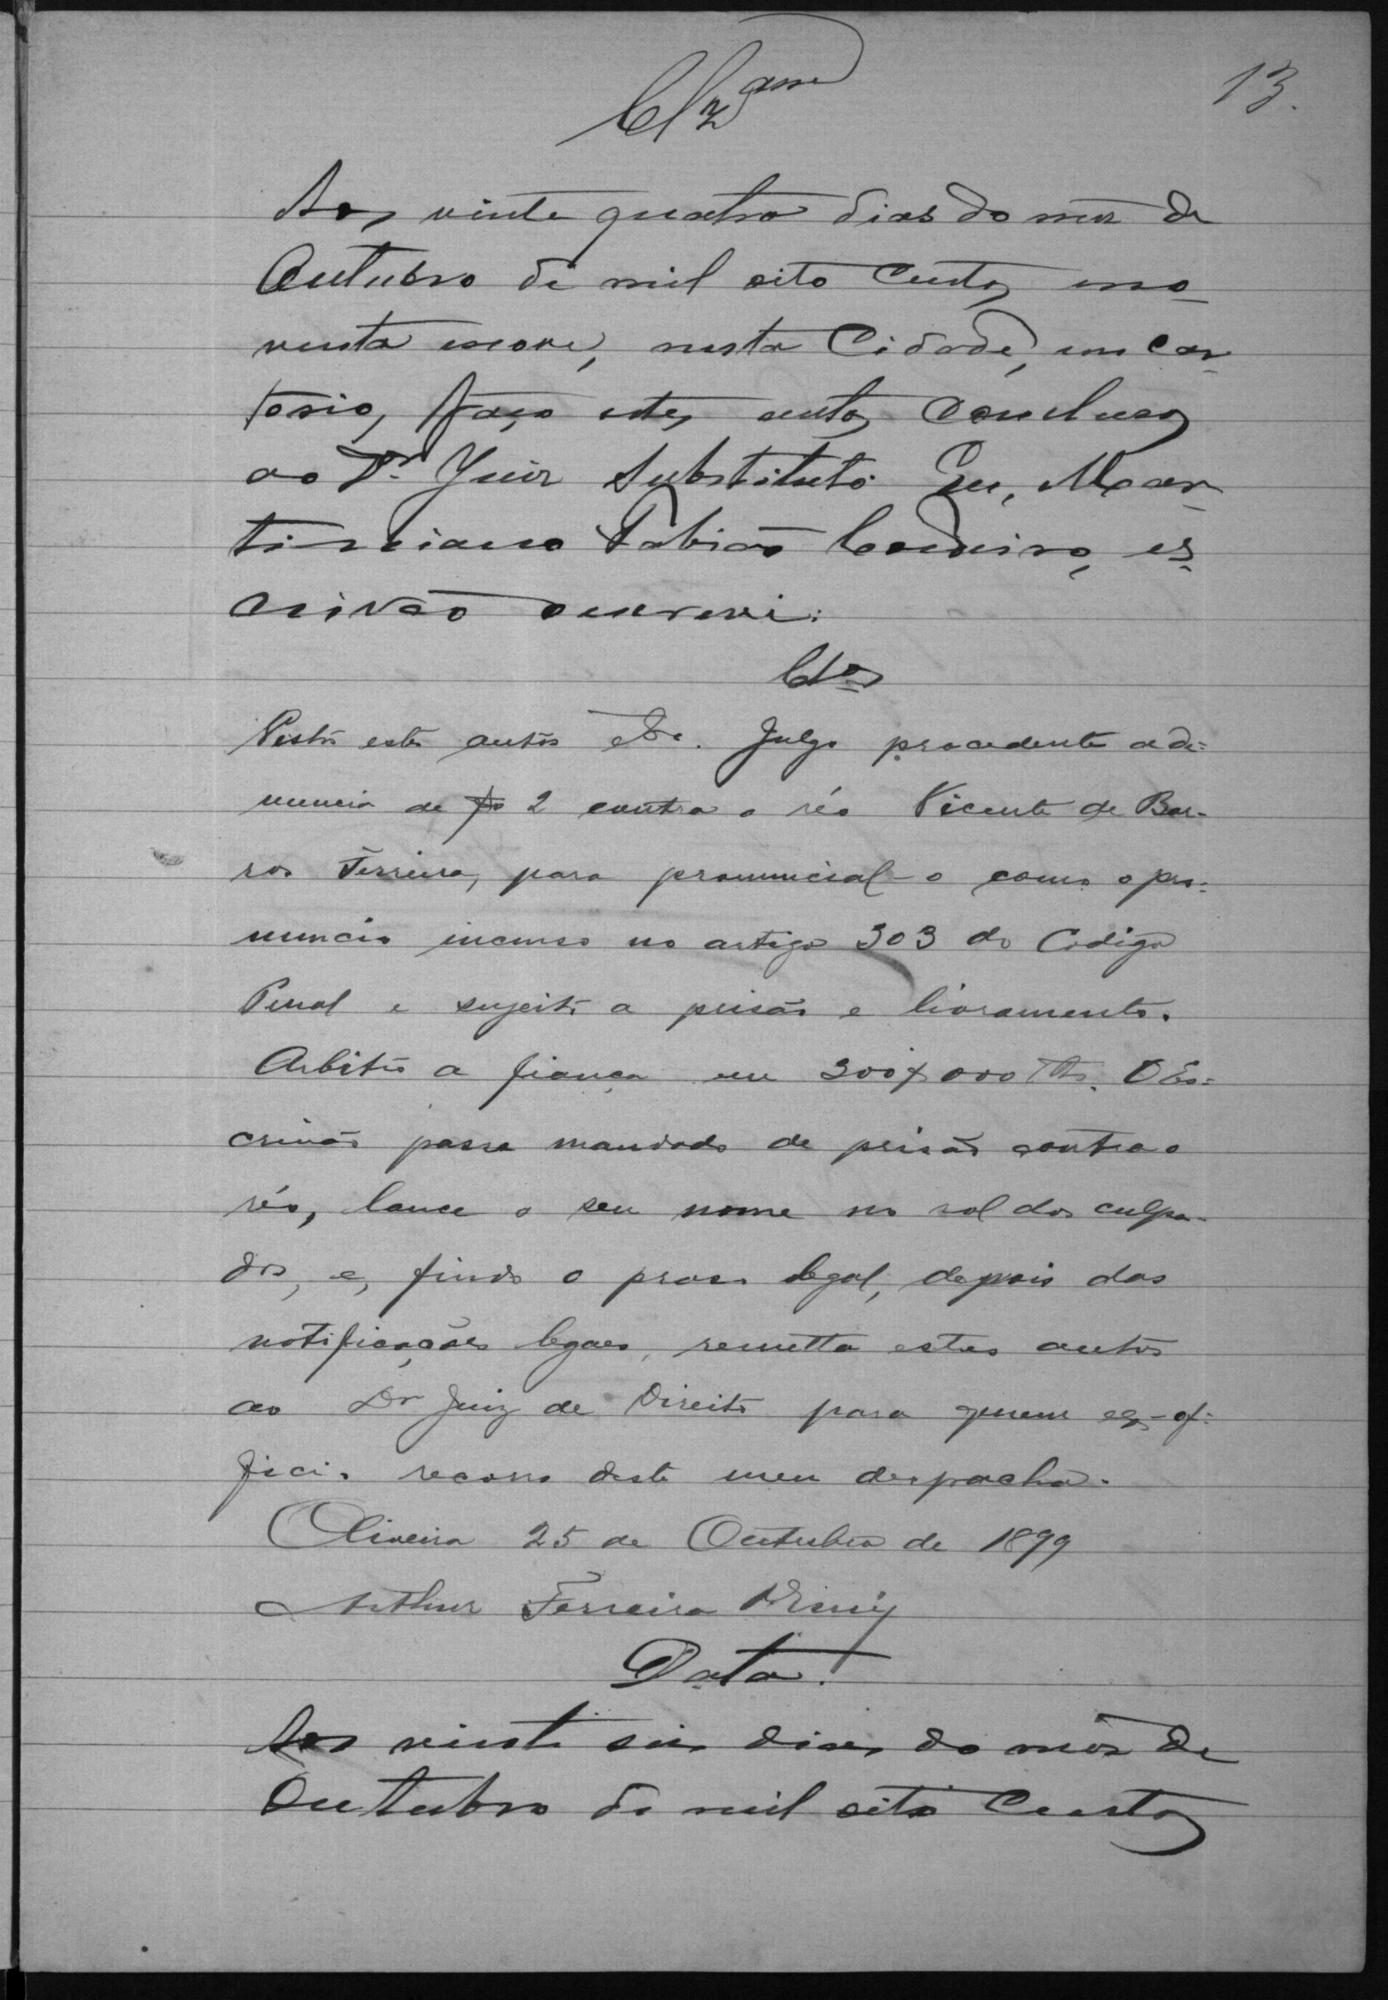 13.
Aos vinte quatro dias do mez de
Outubro de mil oito centos e no-
venta e nove, nesta Cidade, em car-
torio, faço estes autos conclusos
ao Dr. Juiz Substituto. Eu, Mar-
tiniano Fabião Cordeiro, es-
crivão o escrevi.
Cl.os
Vistos estes autos etc. Julgo procedente a de-
nuncia de fs 2 contra o réo Vicente de Bar-
ros Ferreira, para pronuncial-o como o pro-
nuncio incurso no artigo 303 do Codigo
Penal e sujeito a prisão e livramento.
Arbitro a fiança em 300$000 rs. O Es-
crivão passe mandado de prisão contra o
réo, lance o seu nome no rol dos culpa-
dos, e, findo o praso legal, depois das
notificações legaes, remetta estes autos
ao Dr Juiz de Direito para quem ex-of-
ficio recorro deste meu despacho.
Oliveira 25 de Outubro de 1899
Arthur Ferreira Diniz
Data.
Aos vinte seis dias do mez de
Outubro de mil oito centos